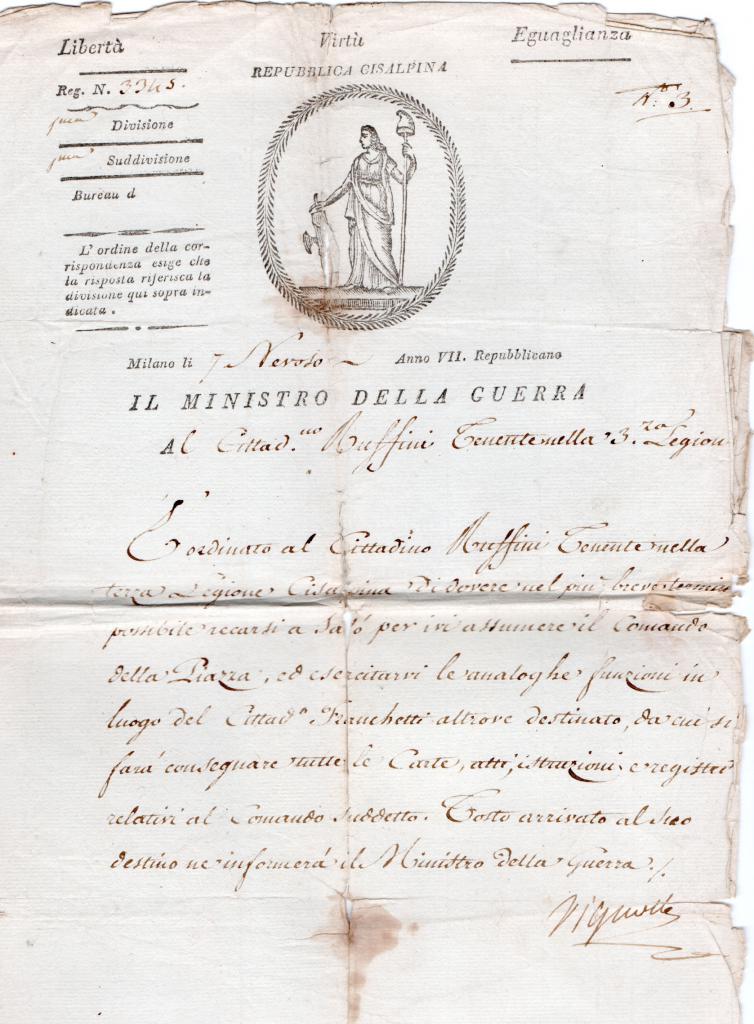 Libertà Virtù Eguaglianza
REPUBBLICA CISALPINA
Reg. N. 3345.
N.º 3.
Divisione
Suddivisione
Bureau d
L'ordine della cor-
rispondenza esige che
la risposta riferisca la
divisione qui sopra in-
dicata.
Milano li 7 Nevoso Anno VII. Repubblicano
IL MINISTRO DELLA GUERRA
Al Cittad.no Ruffini Tenente nella 3.za Legion
È ordinato al Cittadino Ruffini Tenente nella
terza Legione Cisalpina di dovere nel più breve termine
possibile recarsi a Salò per ivi assumere il Comando
della Piazza, ed esercitarvi le analoghe funzioni in
luogo del Cittad.o Franchetti altrove destinato, da cui si
farà consegnare tutte le Carte, atti, istruzioni, e registri
relativi al Comando suddetto. Tosto arrivato al suo
destino ne informerà il Ministro della Guerra ./.
Vignolle